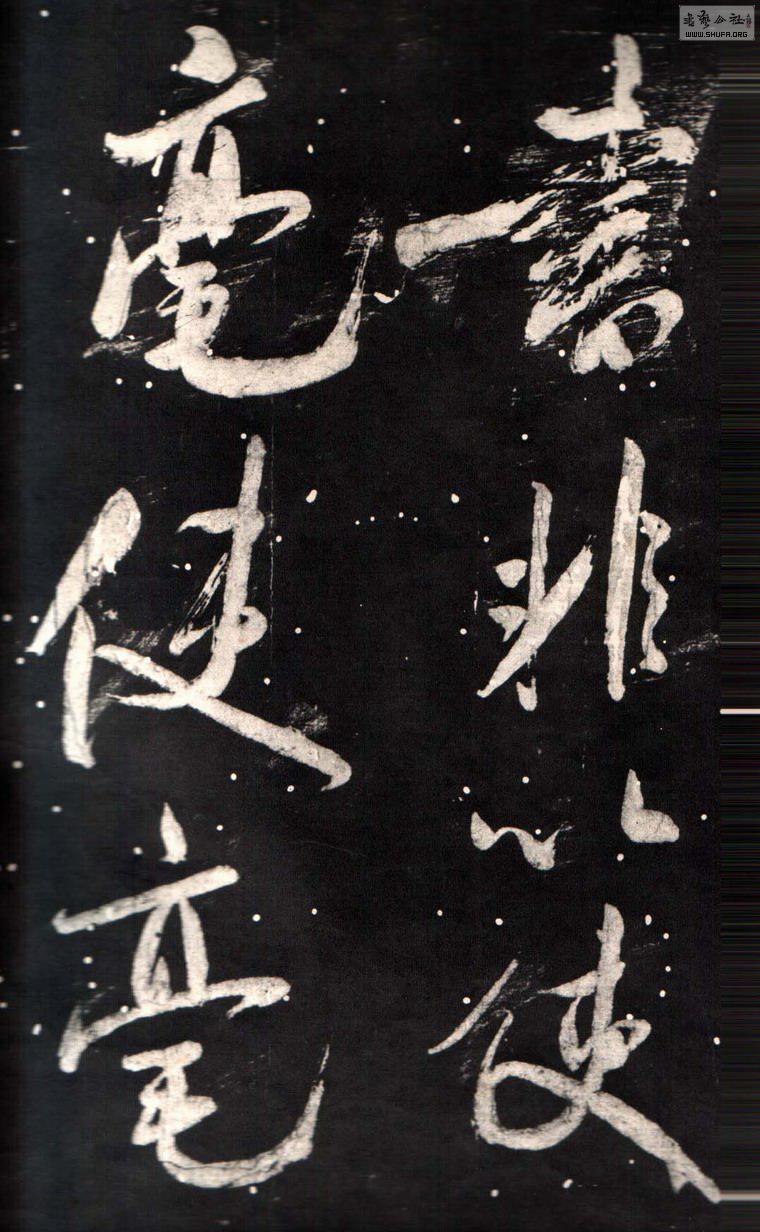 書非以使
毫使毫
书藝公社
WWW.SHUFA.ORG